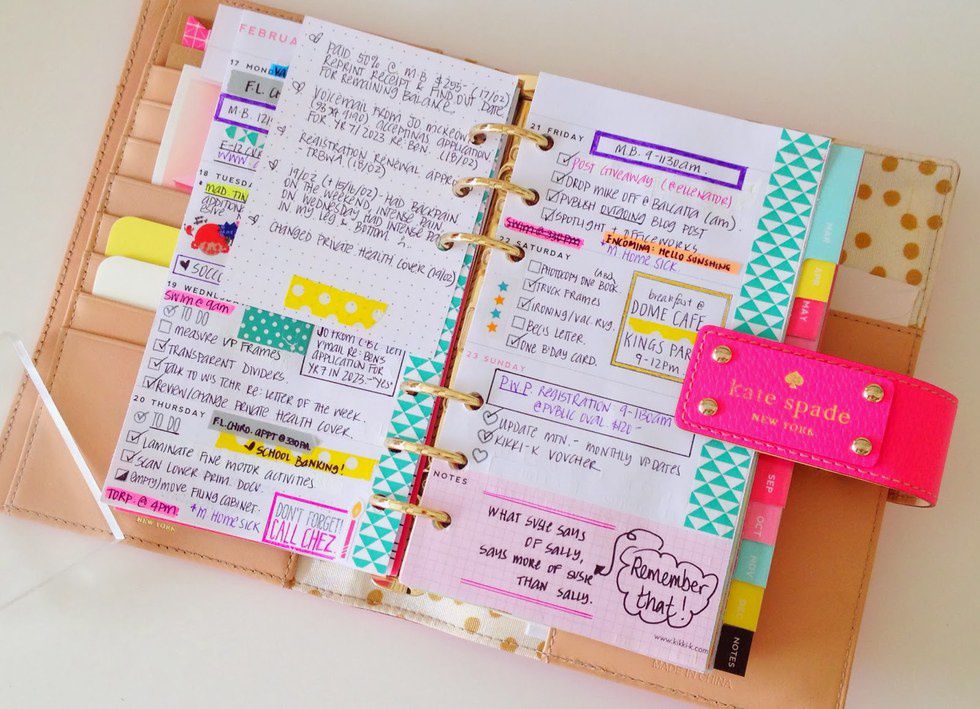 FEBRUA
17 MOND
F.L. CHI
M.B. 121
E-12 CRE
WWW.
18 TUESD
MAD. TIN
ADDITION
SIVE
SOCC
19 WEDNE
SWIM @ 9AM
TO DO
MEASURE VP FRAMES
TRANSPARENT DIVIDERS.
TALK TO W'S TCHR RE: LETTER OF THE WEEK.
REVIEW/CHANGE PRIVATE HEALTH COVER.
20 THURSDAY
TO DO
F.L. CHIRO. APPT @ 330PM
SCHOOL BANKING!
LAMINATE FINE MOTOR ACTIVITIES
SCAN LOWER PRIM. DOCU.
EMPTY/MOVE FILING CABINET.
TORP. @ 4PM!
M HOME SICK
DON'T FORGET!
CALL CHEZ.
NEW YORK
PAID 50% @ M.B. $255- (17/02)
REPRINT RECEIPT & FIND OUT DATE
FOR REMAINING BALANCE.
VOICEMAIL FROM JO MCKEOW
ACCEPTING APPLICATION
FOR YR 7/2023 RE: BEN. (18/02)
REGISTRATION RENEWAL APPR.
TRBWA (18/02)
19/02 (+15/16/02) - HAD BACKPAIN
ON THE WEEKEND, INTENSE PAIN
ON WEDNESDAY. HAD INTENSE PA
IN MY LEG & BOTTOM
CHANGED PRIVATE HEALTH COVER (19/02)
JO FROM CBC LEFT
V'MAIL RE: BEN'S
APPLICATION FOR
YR 7 IN 2023 - "YES"
21 FRIDAY
M.B. 9-1130AM.
POST GIVEAWAY (@ELLENATOR)
DROP MIKE OFF @ BALCATTA (AM).
PUBLISH OUTGOING BLOG POST
SPOTLIGHT + OFFICEWORKS
SWIM @ 330PM
ENCOMING: HELLO SUNSHINE
M HOME SICK
22 SATURDAY
PHOTOCOPY ONE BOOK. (ABC)
TRUCK FRAMES
IRONING/VAL. RVG.
BEC'S LETTER.
ONE B'DAY CARD.
breakfast @
DOME CAFE
KINGS PAR
9-12PM.
23 SUNDAY
P.W.P REGISTRATION 9-1130AM
@ PUBLIC OVAL $120-
UPDATE MTN. - MONTHLY UPDATES
KIKKI-K VOUCHER.
NOTES
WHAT SUSIE SAYS
OF SALLY,
SAYS MORE OF SUSIE
THAN SALLY.
Remember
that!
www.kikki-k.com
MAR
APR
MAY
kate spade
NEW YORK
SEP
OCT
NOV
DEC
NOTES
MADE IN CHINA